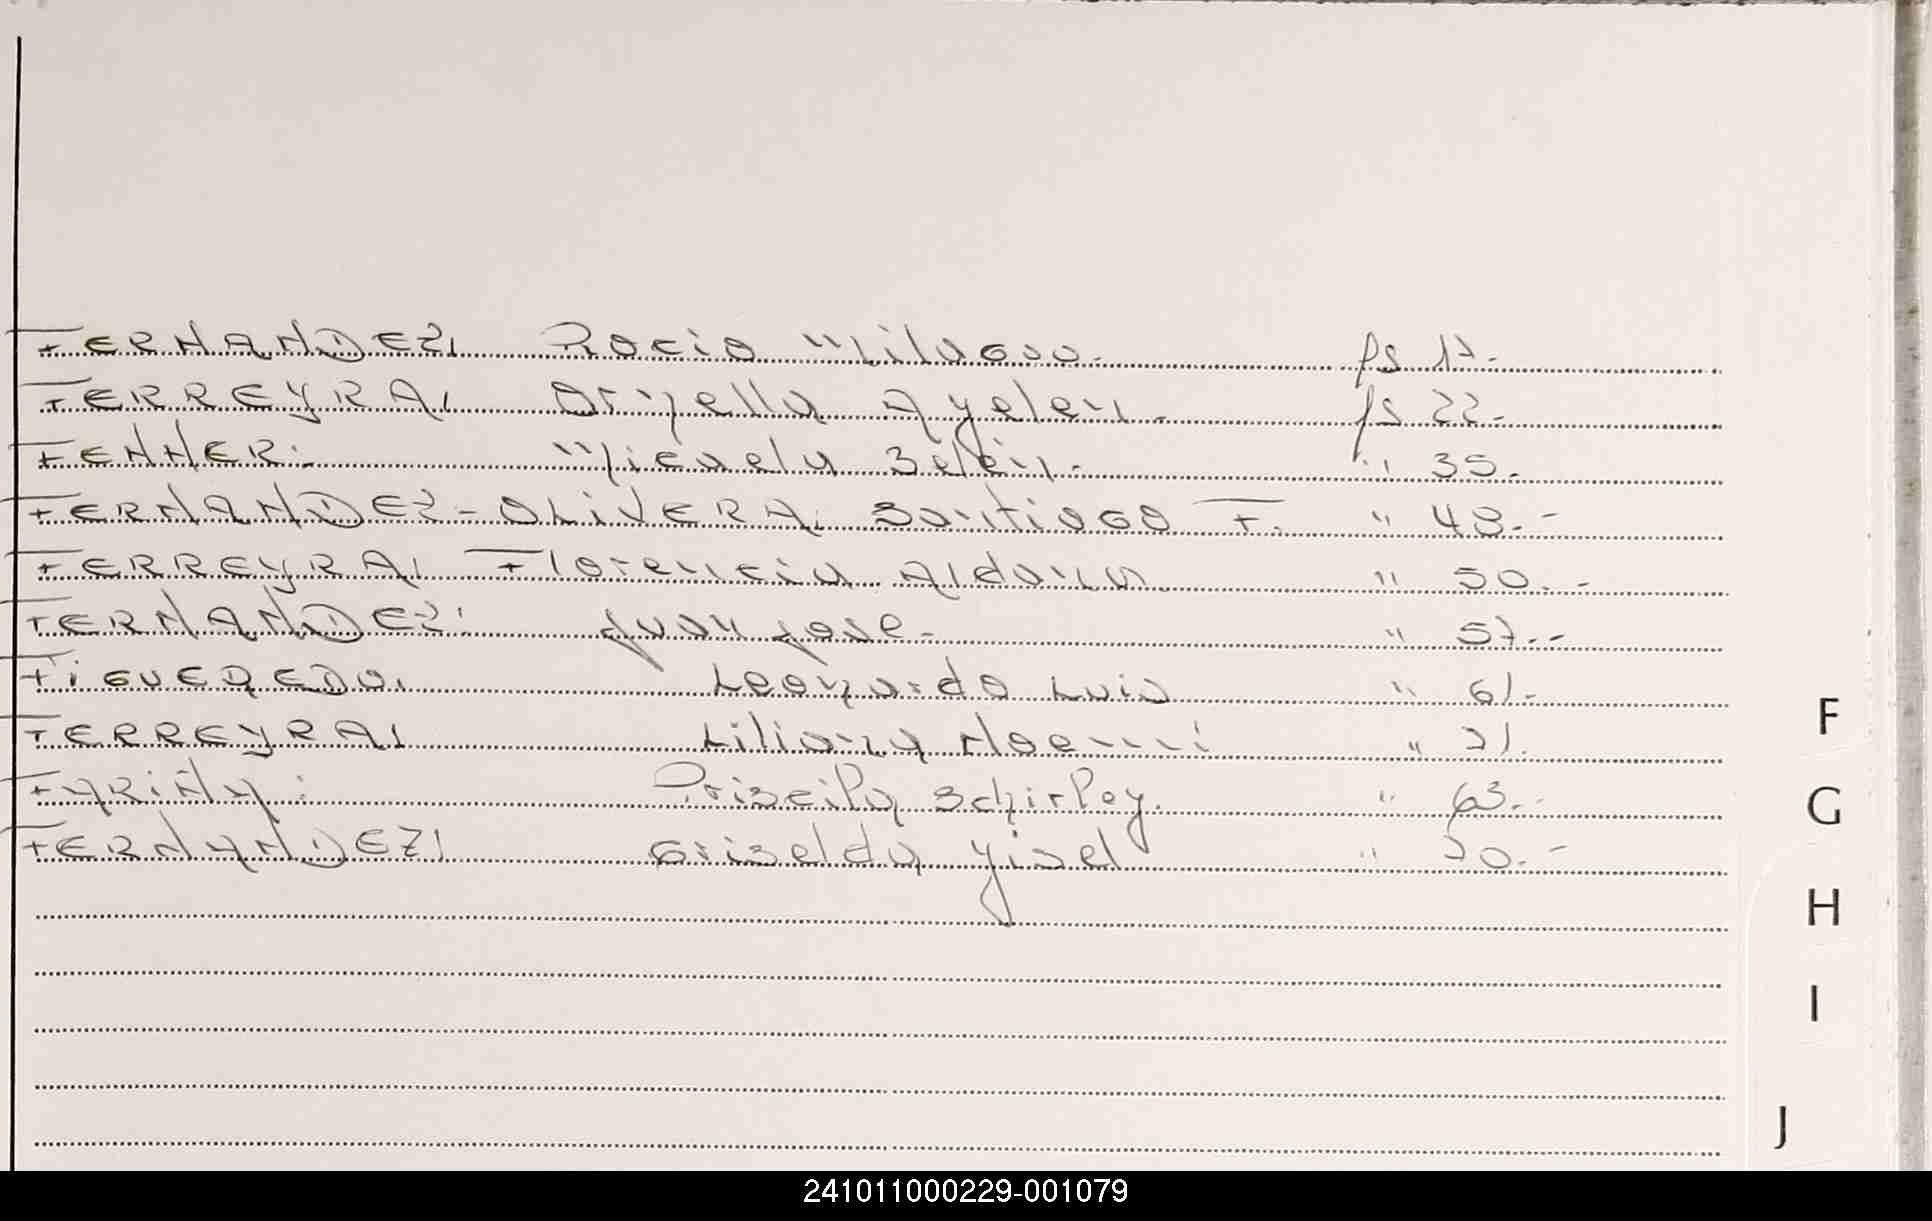 FERNANDEZ, Rocio Milagro. fs 17.
FERREYRA, Ornella Ayelen. fs 22.
FENNER: Micaela Belén. " 35.
FERNANDEZ-OLIVERA, Santiago F. " 48.-
FERREYRA, Florencia Aldana " 50.-
FERNANDEZ: Juan Jose. " 57.-
FIGUEREDO, Leonardo Luis " 61.-
FERREYRA, Liliana Noemi " 71.
FARIÑA: Priscila Schirley. " 63.-
FERNANDEZ, Griselda Yisel " 70.-
F
G
H
I
J
241011000229-001079